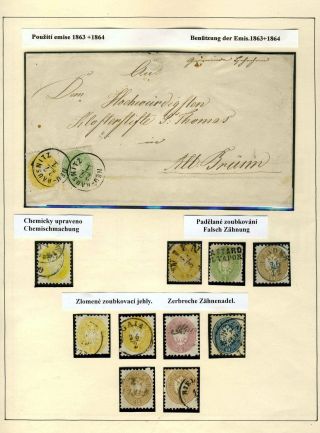 Použití emise 1863 +1864
Benützung der Emis.1863+1864
An
Dem Hochwürdigsten
Klosterstifte S. Thomas
Alt Brünn
NEU-RAUSNITZ
NEU-RAUSNITZ
Chemicky upraveno
Chemischmachung
Padělané zoubkování
Falsch Zähnung
Zlomené zoubkovací jehly.
Zerbroche Zähnenadel.